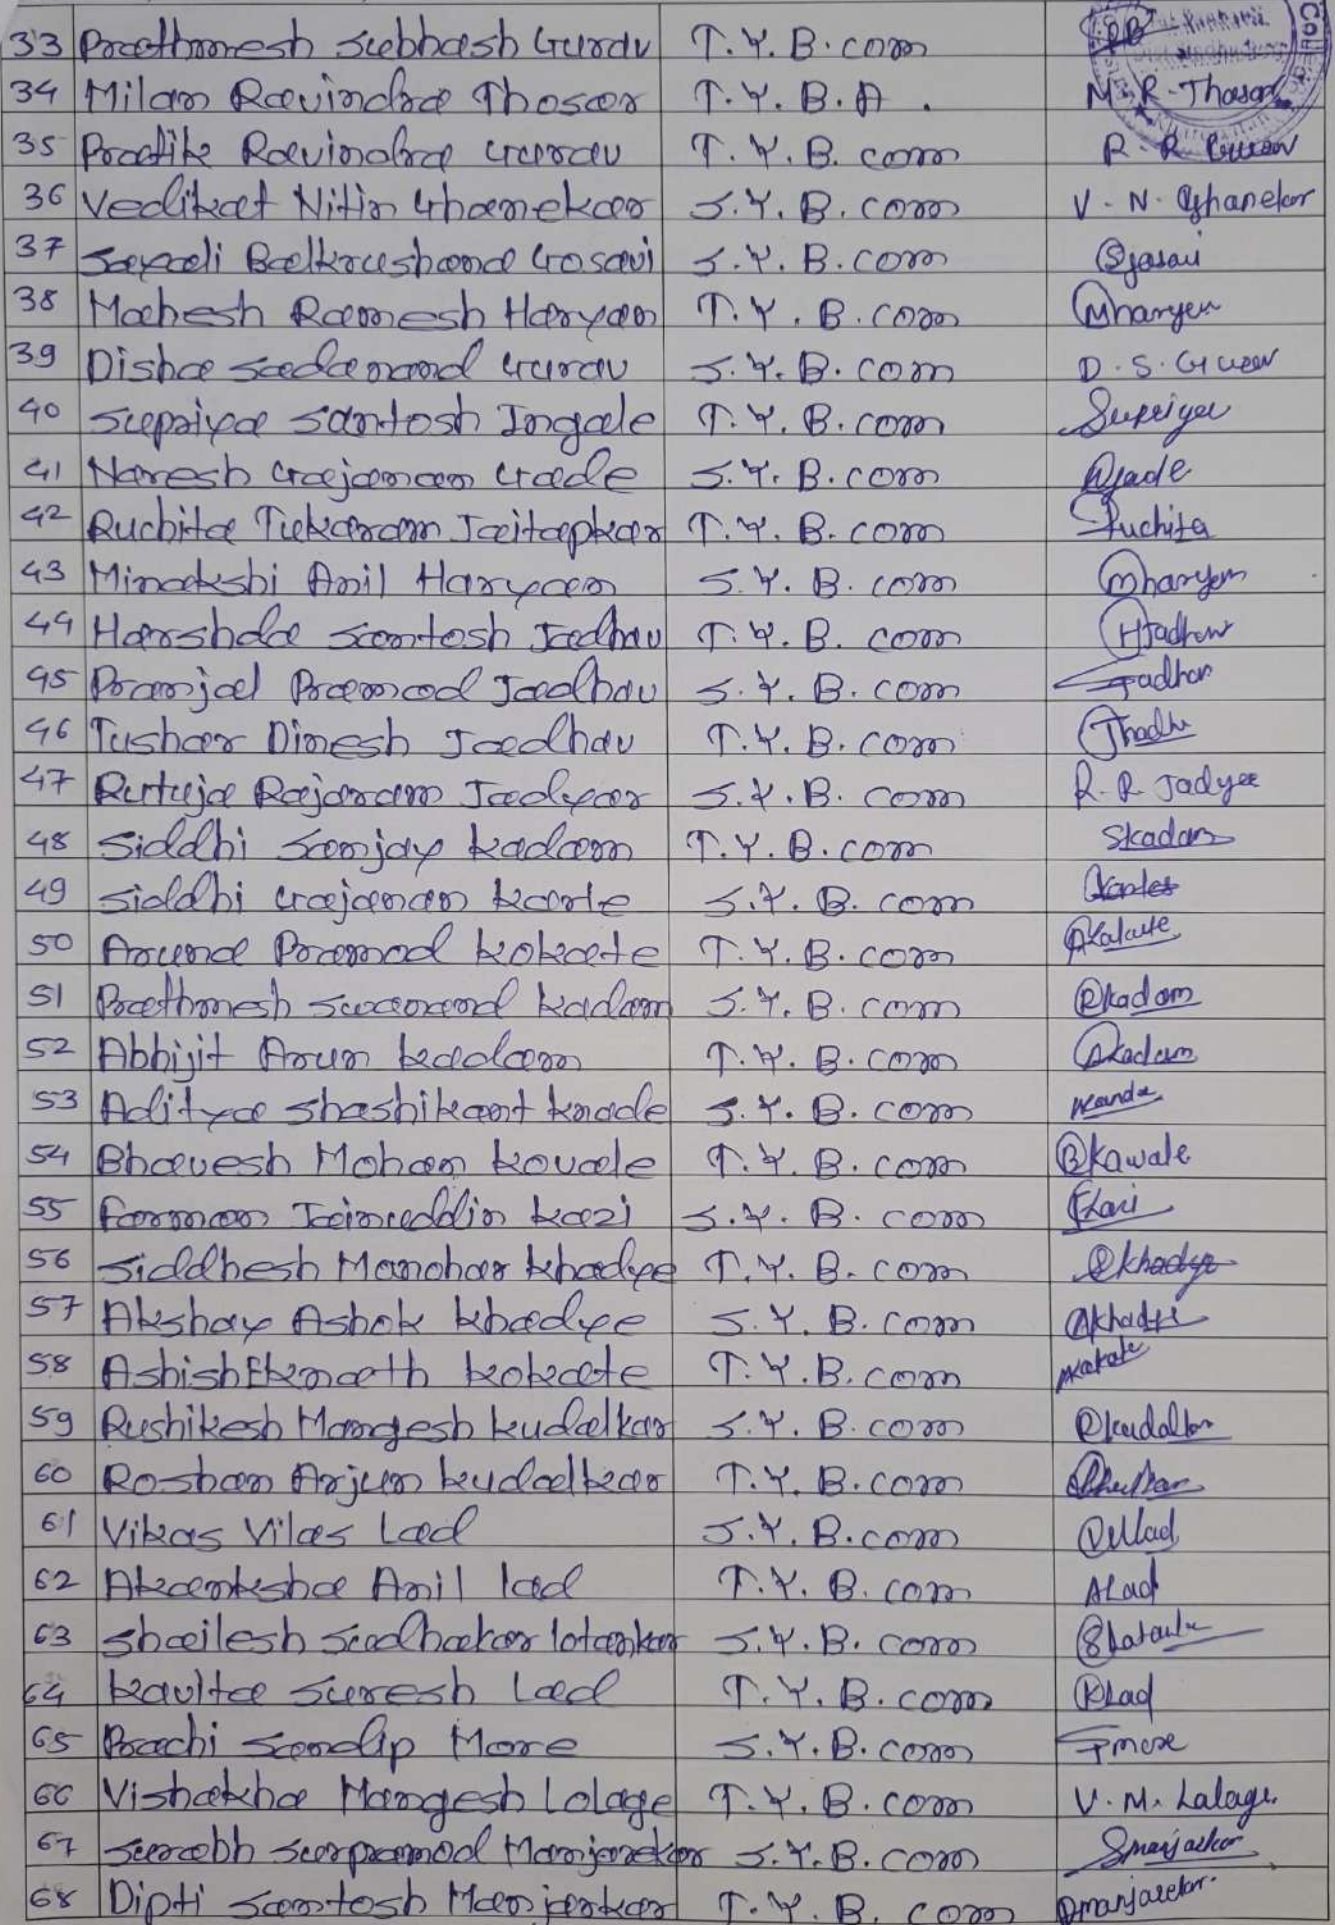 33 Prathmesh Subhash Gurav T.Y.B.com
34 Milan Ravindra Thosar T.Y.B.A. M.R.Thosar
35 Pratik Ravindra Gurav T.Y.B.com R.R Gurav
36 Vedikat Nitin Ghanekar S.Y.B.com V.N.Ghanekar
37 Sayali Balkrushana Gosavi S.Y.B.com SGosavi
38 Mahesh Ramesh Haryan T.Y.B.com Mharyan
39 Disha Sadanand Gurav S.Y.B.com D.S.Gurav
40 Supriya Santosh Ingale T.Y.B.com Supriya
41 Naresh Gajanan Gade S.Y.B.com NGade
42 Ruchita Tukaram Jaitapkar T.Y.B.com Ruchita
43 Minakshi Anil Haryan S.Y.B.com Mharyan
44 Harshda Santosh Jadhav T.Y.B.com HJadhav
45 Pranjal Pramod Jadhav S.Y.B.com Jadhav
46 Tushar Dinesh Jadhav T.Y.B.com
47 Rutuja Rajaram Jadyar S.Y.B.com R.R Jadyar
48 Siddhi Sanjay kadam T.Y.B.com Skadam
49 Siddhi Gajanan karle S.Y.B.com
50 Aruna Pramod kokate T.Y.B.com
51 Prathmesh kadam S.Y.B.com Pkadam
52 Abhijit Arun kadam T.Y.B.com Akadam
53 Aditya Shashikant knade S.Y.B.com
54 Bhavesh Mohan kovale T.Y.B.com Bkawale
55 Farman Jainuddin kazi S.Y.B.com Fkazi
56 Siddhesh Manohar khadye T.Y.B.com Skhadye
57 Akshay Ashok khadye S.Y.B.com Akhadye
58 Ashish Eknath kokate T.Y.B.com Akokate
59 Rushikesh Mangesh kudalkar S.Y.B.com Rkudalkar
60 Roshan Arjun kudalkar T.Y.B.com
61 Vikas Vilas Lad S.Y.B.com
62 Akanksha Anil lad T.Y.B.com ALad
63 Shailesh Sudhakar lotankar S.Y.B.com
64 kavita Suresh Lad T.Y.B.com KLad
65 Prachi Sandip More S.Y.B.com Pmore
66 Vishakha Mangesh Lolage T.Y.B.com V.M.Lalage
67 Manjarekar S.Y.B.com
68 Dipti Santosh Manjarkar T.Y.B.com Dmanjarekar